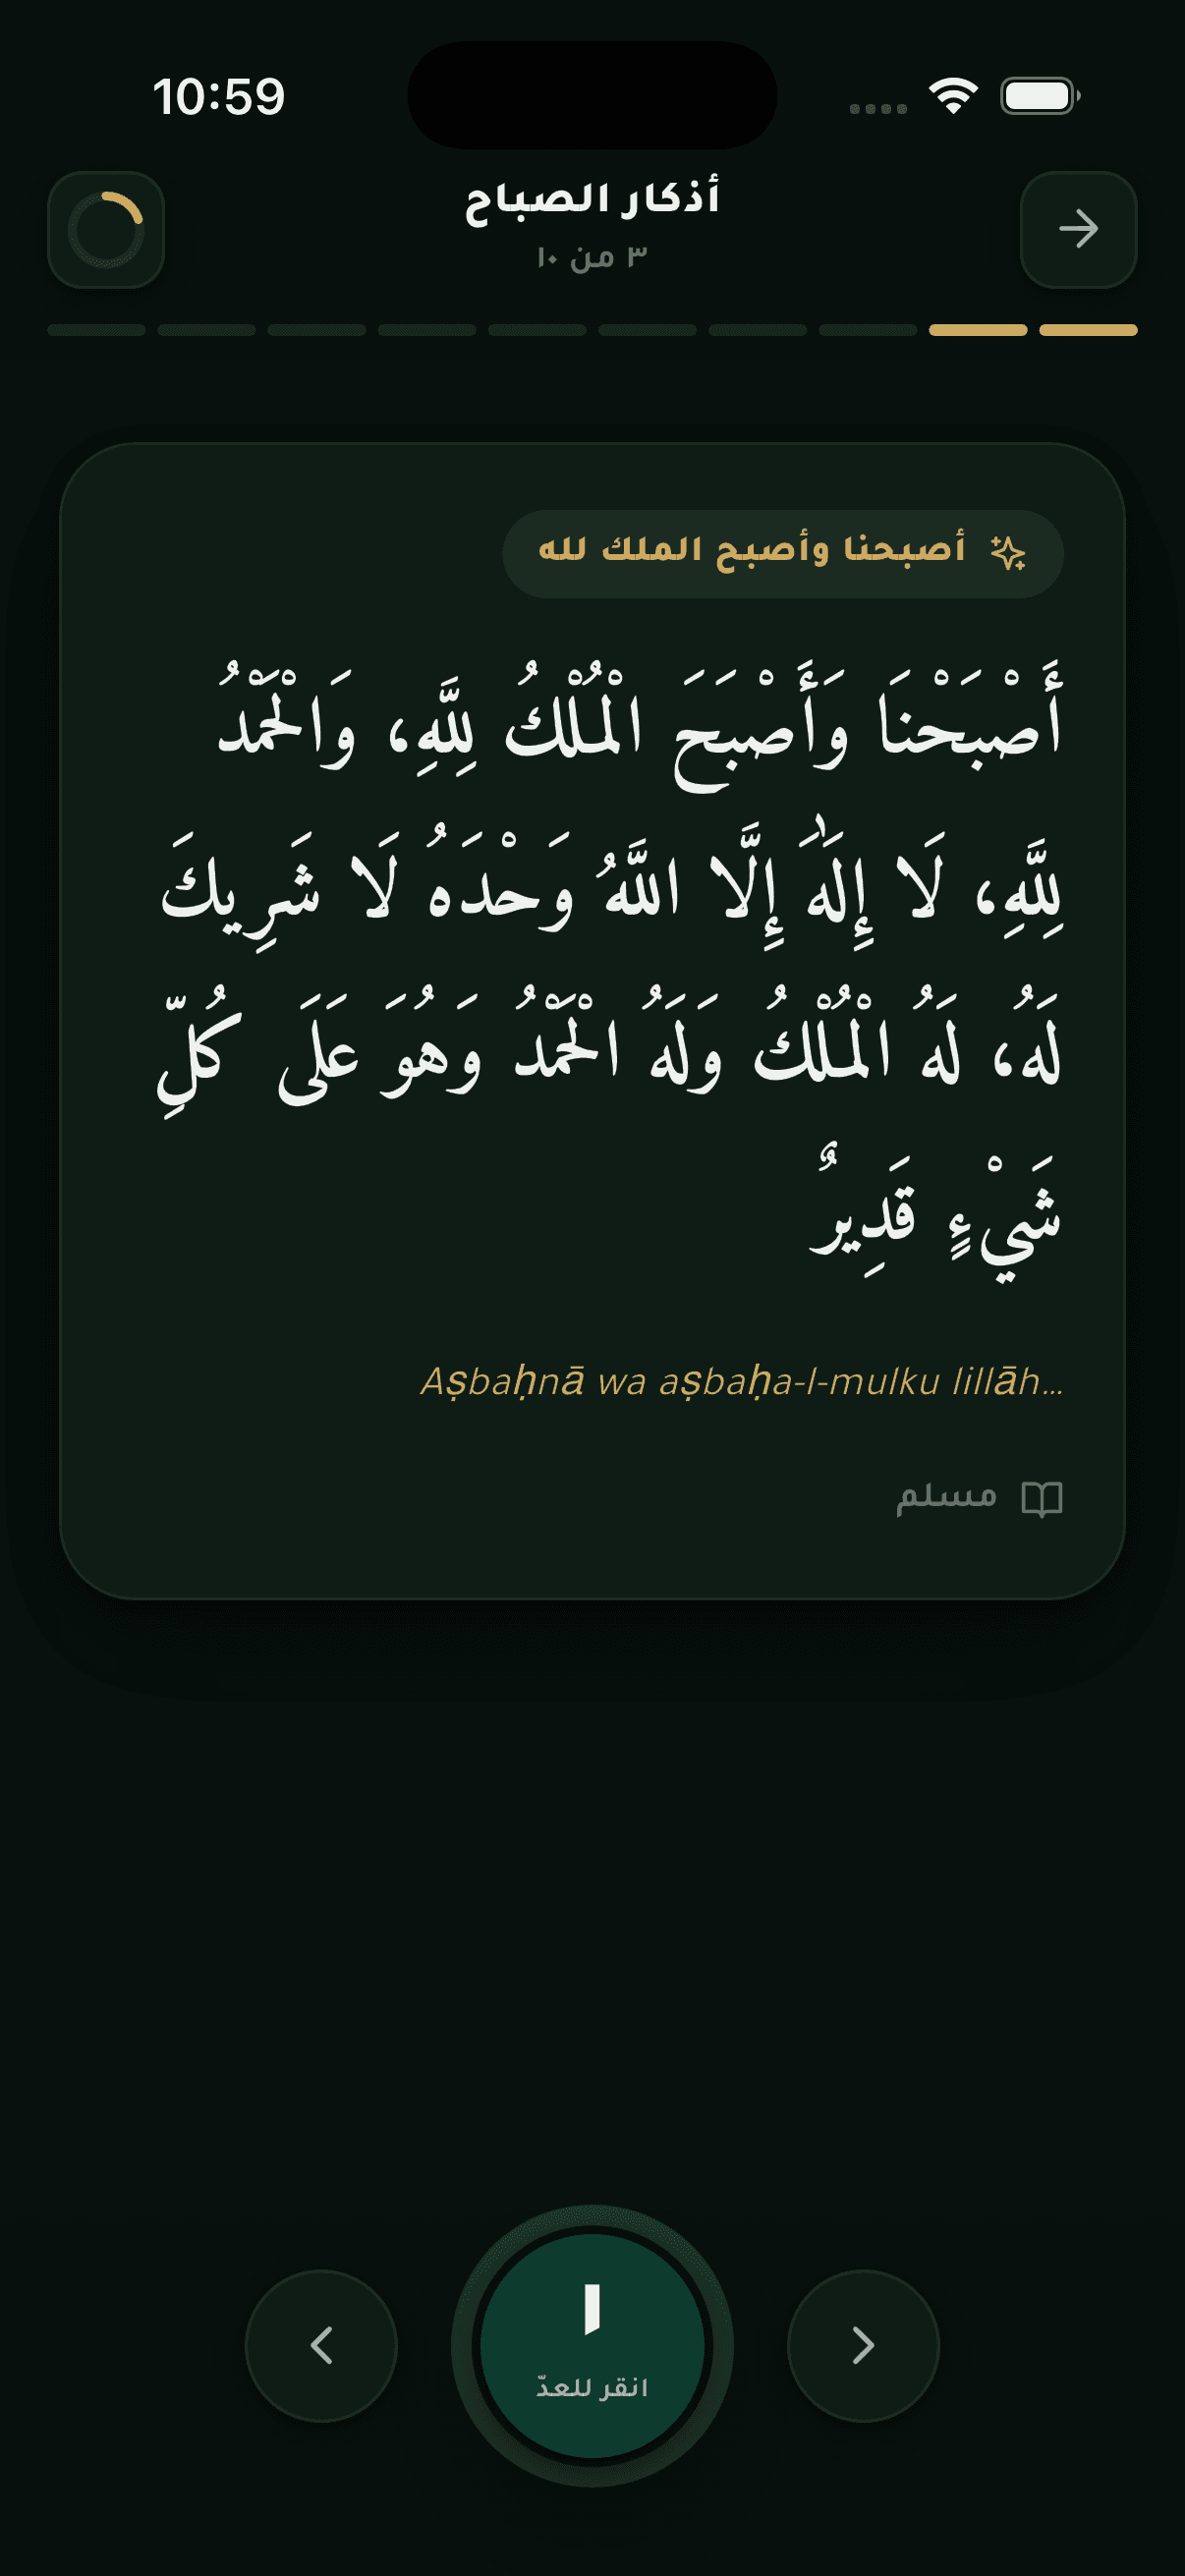 10:59
أذكار الصباح
٣ من ١٠
أصبحنا وأصبح الملك لله
أَصْبَحْنَا وَأَصْبَحَ الْمُلْكُ لِلَّهِ، وَالْحَمْدُ
لِلَّهِ، لَا إِلَٰهَ إِلَّا اللَّهُ وَحْدَهُ لَا شَرِيكَ
لَهُ، لَهُ الْمُلْكُ وَلَهُ الْحَمْدُ وَهُوَ عَلَى كُلِّ
شَيْءٍ قَدِيرٌ
Aṣbaḥnā wa aṣbaḥa-l-mulku lillāh...
مسلم
١
انقر للعدّ